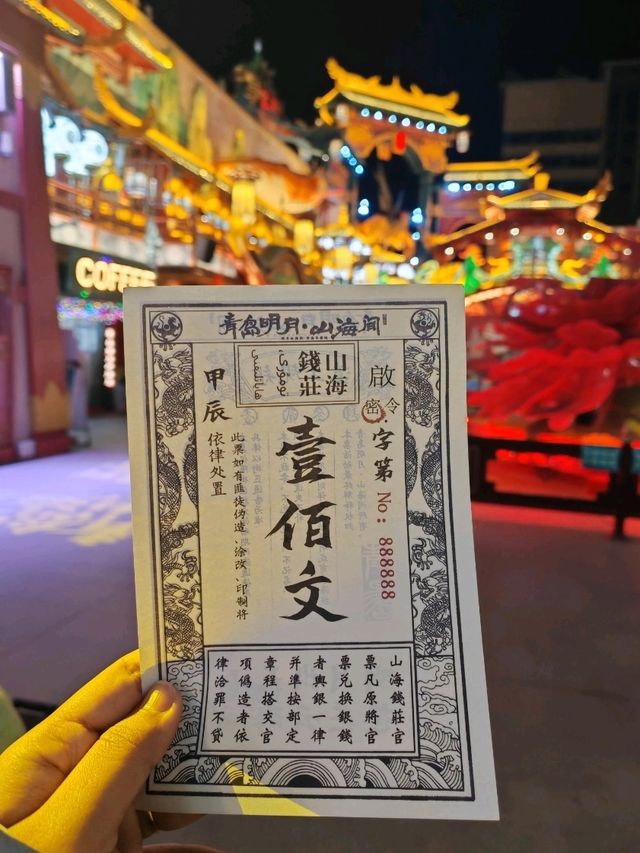 COFFEE
青島明月·山海間
山海
錢莊
啟
密令
字第 No: 888888
壹佰文
此票如有匪徒伪造、涂改、印制将
依律处置
甲辰
山海錢莊官
票凡原將官
票兑换銀錢
者與銀一律
并準按部定
章程搭交官
項偽造者依
律洽罪不貸